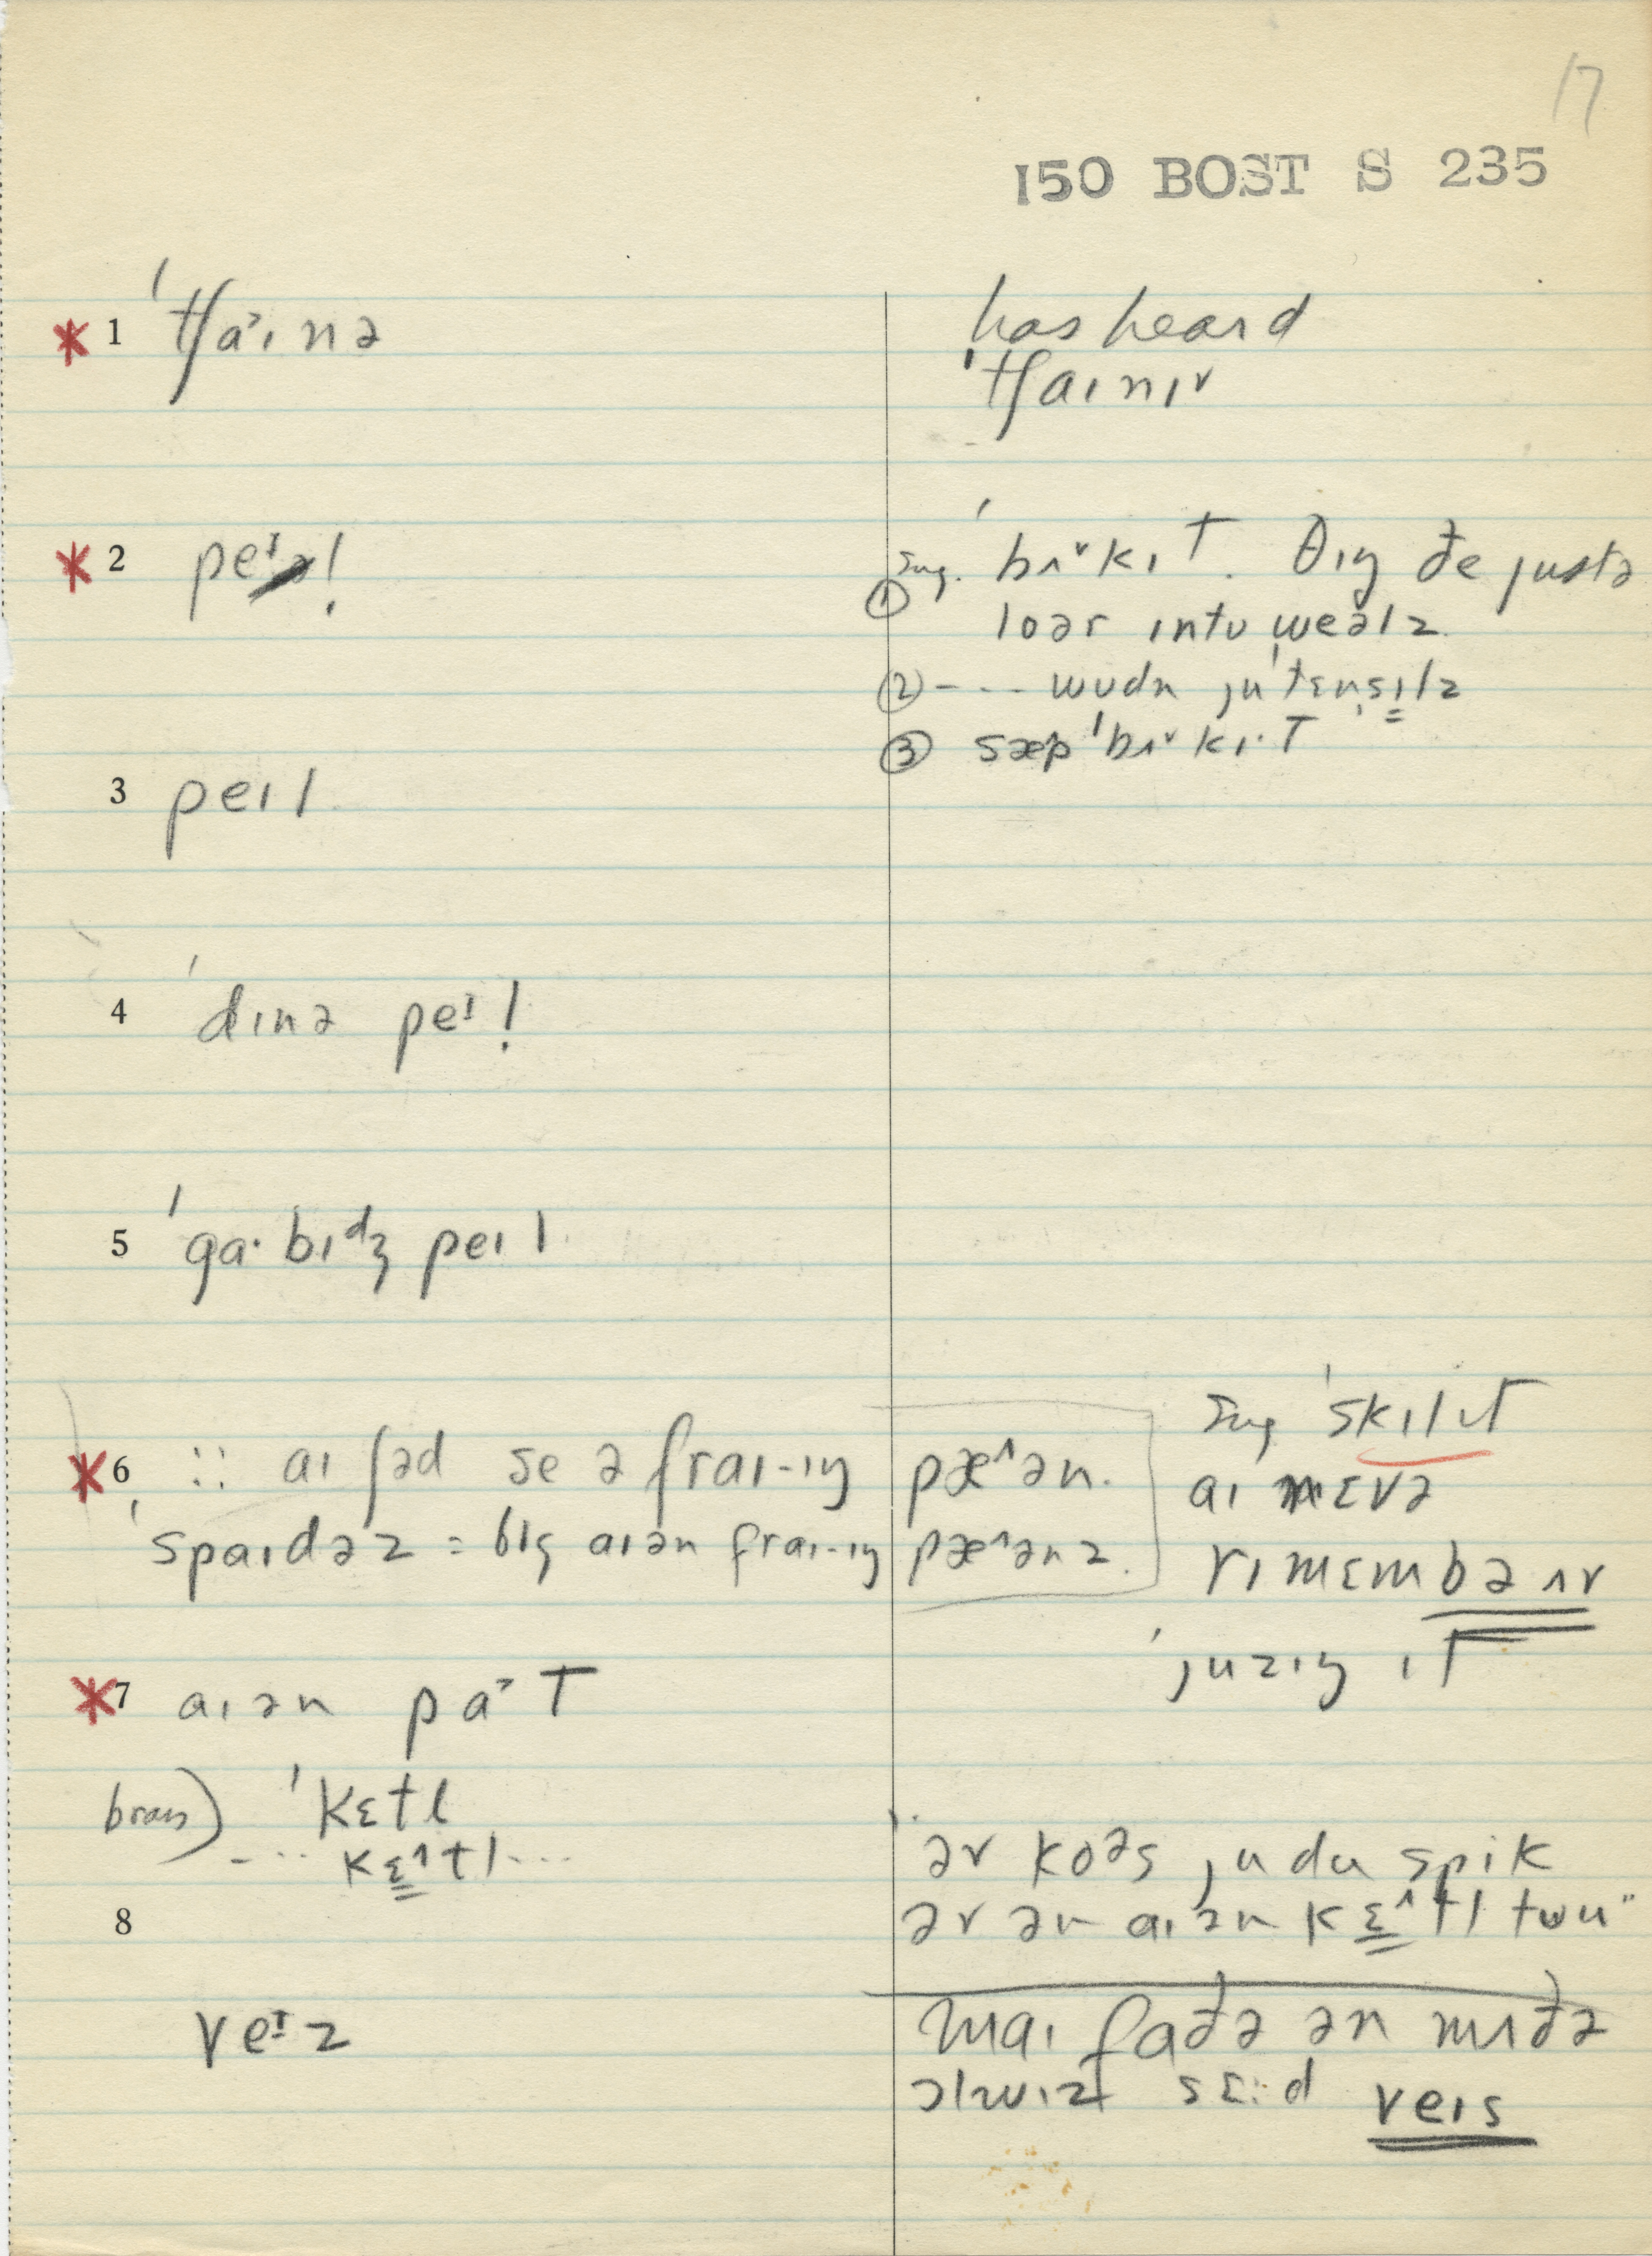 17
150 BOST S 235
* 1 ˈtʃa˃ɪnə
has heard
ˈtʃaɪnɪ˅
* 2 peᶦl
sug. ˈbʌ˅kɪT. ðɪŋ ðe justə
① loər ɪntu wealz
② - ... wudn juˈtɛnsɪlz
③ sæp ˈbʌ˅kɪ·T
3 peɪl
4 ˈdɪnə peᶦl
5 ˈga·bɪᵈʒ peɪl
sug ˈskɪlɪT
* 6 :: aɪ ʃəd se ə fraɪ-ɪŋ pæ^ən.
aɪ nɛvə
ˈspaɪdəz = bɪg aɪən fraɪ-ɪŋ pæ^ənz.
rɪmɛmbə ʌv
ˈjuzɪŋ ɪT
* 7 aɪən pa˃T
brass) ˈkɛtl
--... kɛ^tl...
əv koəs ju du spik
8
əv ən aɪən kɛ^tl tuu"
veᶦz
maɪ faðə ən mʌðə
ɔlwɪz sɛ:d veɪs